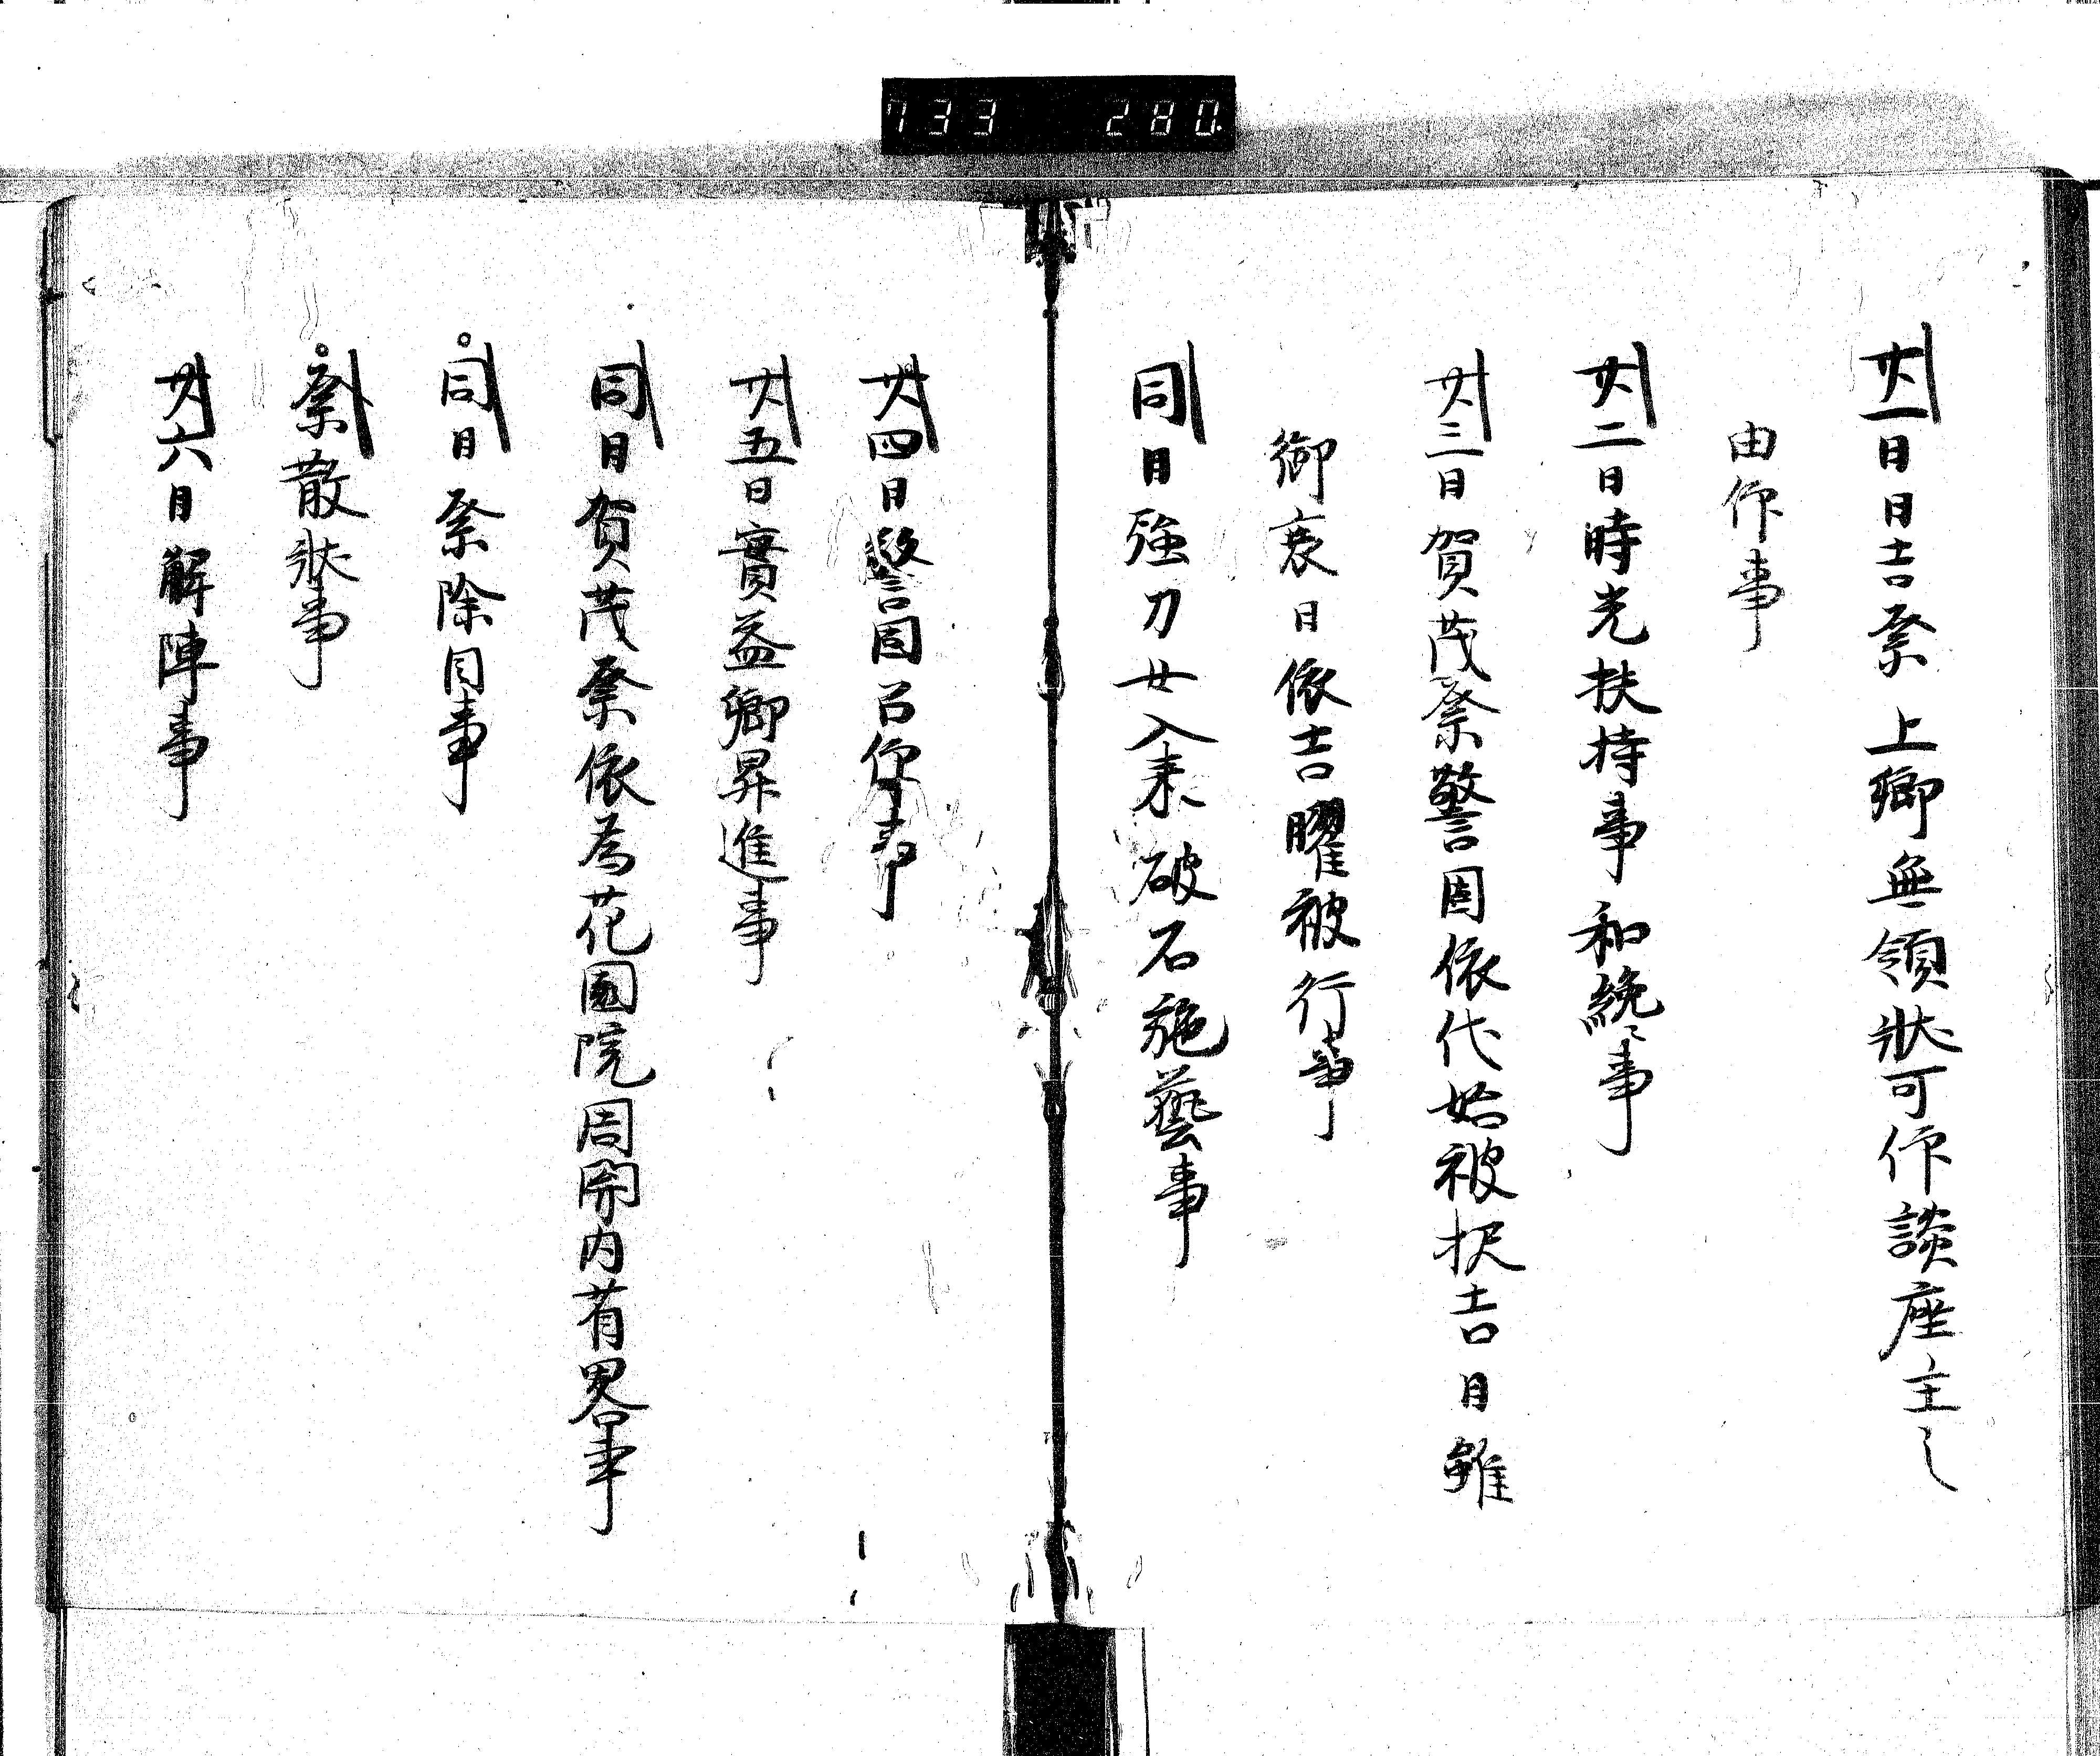 733 280
廿一日日吉祭上卿無領状可仰談座主之
由仰事
廿二日時光扶持事和纔々事
廿三日賀茂祭警固依代始被択吉日雖
御衰日依吉曜被行事
同日強刀女入来破石施藝事
廿四日警固召仰事
廿五日實益卿昇進事
同日賀茂祭依為花園院周関内有畧事
同日祭除目事
祭散状事
廿六日解陣事